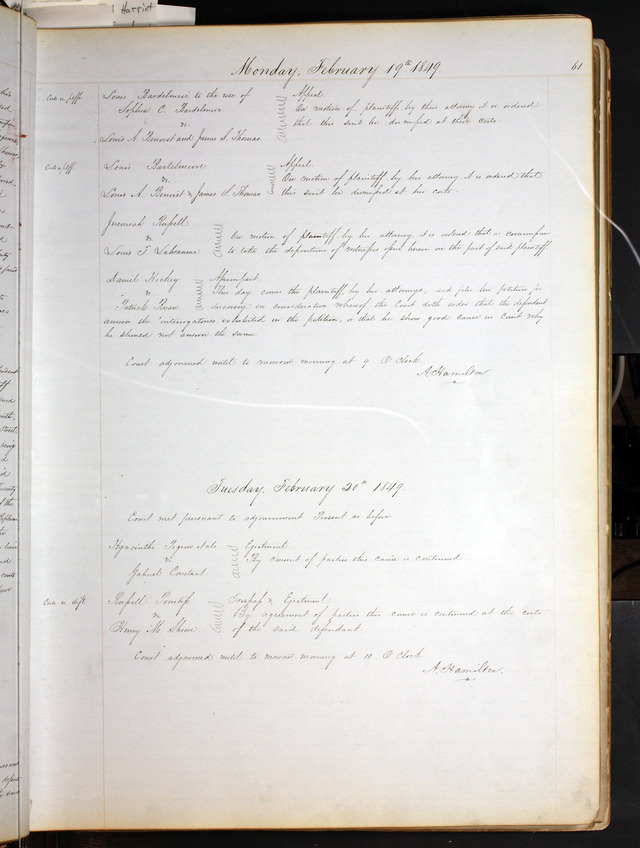 Harriet
Monday, February 19th 1849.
61
Costs v. plff.
Louis Bardelmire to the use of
Sophia C. Bardelmire
vs
Louis A. Benoist and James S. Thomas
Appeal.
On motion of plaintiff by their attorney it is ordered
that this suit be dismissed at their costs.
Costs v. plff.
Louis Bartelmire
vs
Louis A. Benoist & James S. Thomas
Appeal.
On motion of plaintiff by his attorney it is ordered that
this suit be dismissed at his costs
Jeremiah
vs
Louis T. Labeaume
On motion of plaintiff by his attorney, it is ordered that a commission
to take the depositions of witnesses open herein on the part of said plaintiff
Daniel Hickey
vs
Patrick Ryan
Assumpsit.
This day comes the plaintiff by his attorneys, and files his petition for
discovery, on consideration whereof the Court doth order that the defendant
answer the interrogatories exhibited in the petition, or that he show good cause in Court why
he should not answer the same.
Court adjourned until to morrow morning at 9 O'Clock
A. Hamilton
Tuesday, February 20th 1849.
Court met pursuant to adjournment Present as before
Hyacinthe et als
vs
Conclart
Ejectment
By consent of parties this cause is continued.
Costs v. deft.
Russell
vs
Henry M. Shreve
Trespass & Ejectment
By agreement of parties this cause is continued at the costs
of the said defendant.
Court adjourned until to morrow morning at 10 O'Clock
A. Hamilton.